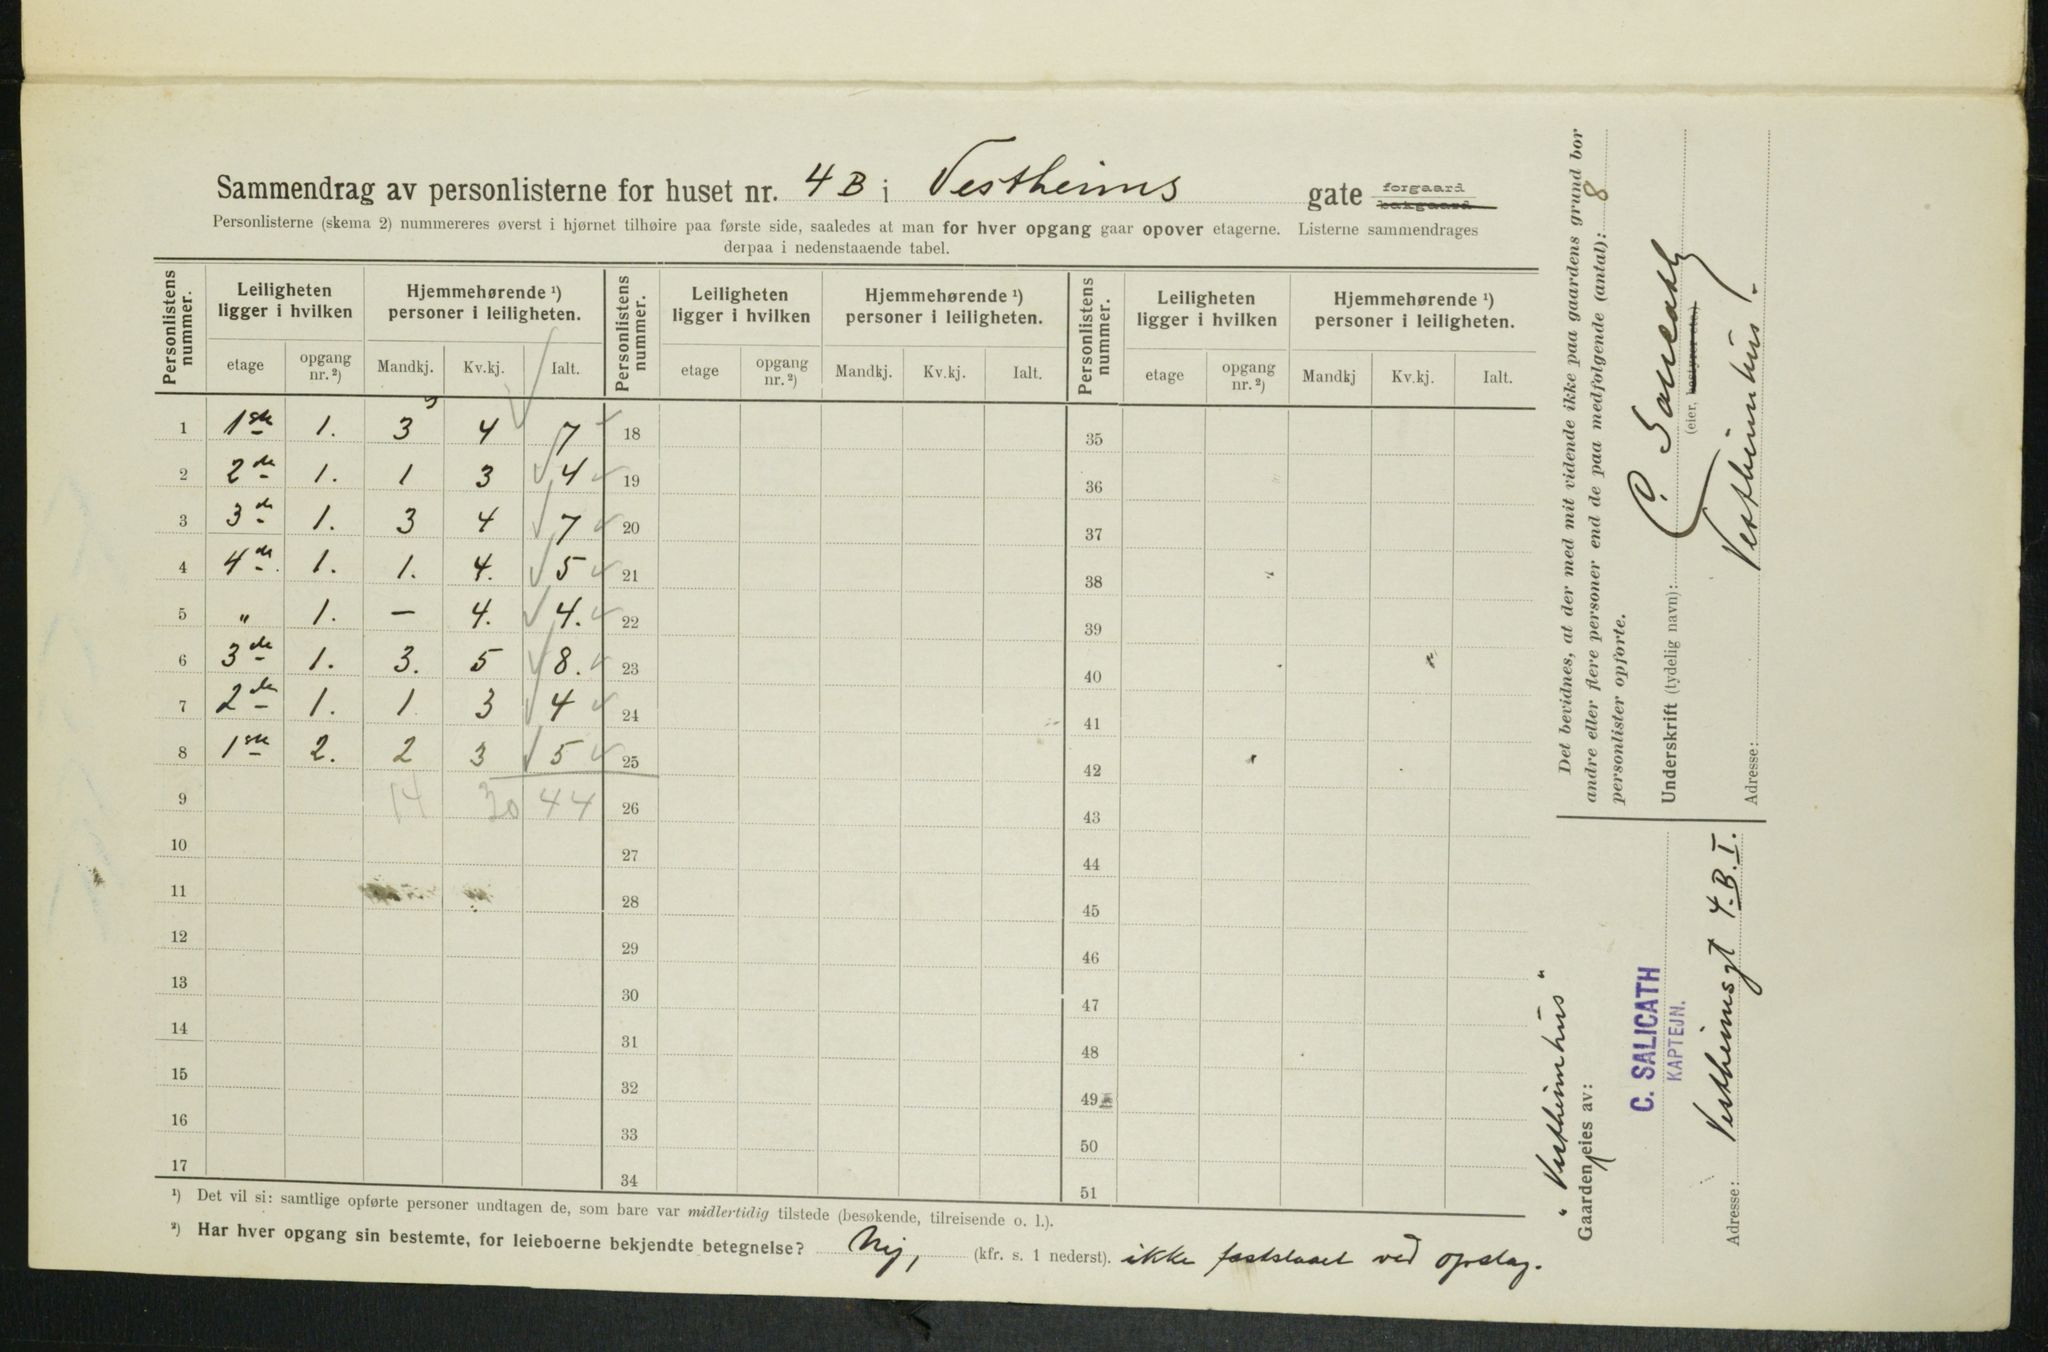 Sammendrag av personlisterne for huset nr. 4 B i Vestheims gate forgaard bakgaard
Personlisterne (skema 2) nummereres øverst i hjørnet tilhøire paa første side, saaledes at man for hver opgang gaar opover etagerne. Listerne sammendrages
derpaa i nedenstaaende tabel.
Personlistens nummer. | Leiligheten ligger i hvilken | Hjemmehørende ¹) personer i leiligheten. | Personlistens nummer. | Leiligheten ligger i hvilken | Hjemmehørende ¹) personer i leiligheten. | Personlistens nummer. | Leiligheten ligger i hvilken | Hjemmehørende ¹) personer i leiligheten.
etage | opgang nr. ²) | Mandkj. | Kv.kj. | Ialt. | etage | opgang nr. ²) | Mandkj. | Kv.kj. | Ialt. | etage | opgang nr. ²) | Mandkj | Kv.kj. | Ialt.
1 | 1ste | 1. | 3 | 4 | 7 | 18 | 35
2 | 2de | 1. | 1 | 3 | 4 | 19 | 36
3 | 3de | 1. | 3 | 4 | 7 | 20 | 37
4 | 4de | 1. | 1. | 4. | 5 | 21 | 38
5 | " | 1. | — | 4. | 4. | 22 | 39
6 | 3de | 1. | 3. | 5 | 8. | 23 | 40
7 | 2de | 1. | 1 | 3 | 4 | 24 | 41
8 | 1ste | 2. | 2 | 3 | 5 | 25 | 42
9 | 14 | 30 | 44 | 26 | 43
10 | 27 | 44
11 | 28 | 45
12 | 29 | 46
13 | 30 | 47
14 | 31 | 48
15 | 32 | 49
16 | 33 | 50
17 | 34 | 51
¹) Det vil si: samtlige opførte personer undtagen de, som bare var midlertidig tilstede (besøkende, tilreisende o. l.).
²) Har hver opgang sin bestemte, for leieboerne bekjendte betegnelse? Nej, (kfr. s. 1 nederst). ikke fastslaaet ved opslag.
Det bevidnes, at der med mit vidende ikke paa gaardens grund bor
andre eller flere personer end de paa medfølgende (antal): 8
personlister opførte.
Underskrift (tydelig navn): C. Salicath
(eier, bestyrer etc.)
Adresse: Vestheimhus.
"Vestheimhus"
Gaarden eies av:
C. SALICATH
KAPTEJN.
Adresse: Vestheimsgt 4.B.I.